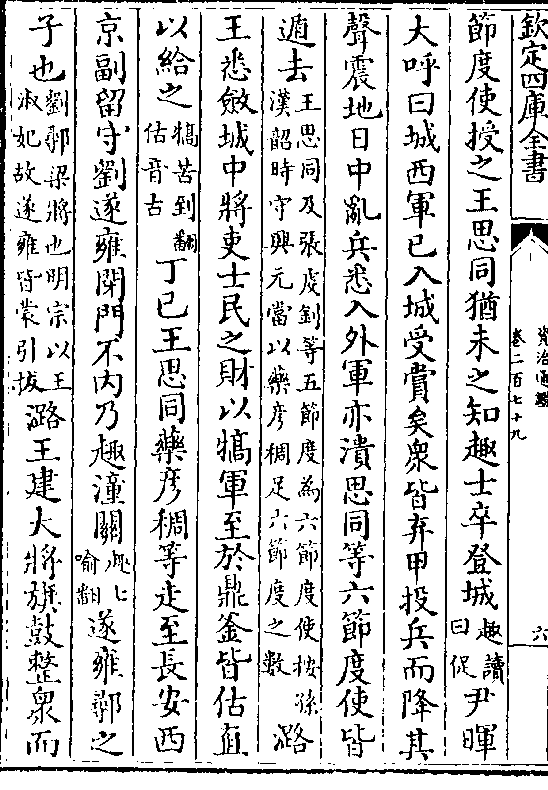 欽定四庫全書
資治通鑑
卷二百七十九
六
節度使授之王思同猶未之知趣士卒登城趣讀曰促尹暉
大呼曰城西軍已入城受賞矣衆皆弃甲投兵而降其
聲震地日中亂兵悉入外軍亦潰思同等六節度使皆
遁去王思同及張虔釗等五節度為六節度使按孫漢韶時守興元當以藥彥稠足六節度之數潞
王悉斂城中將吏士民之財以犒軍至於鼎釜皆估直
以給之犒苦到翻估音古丁巳王思同藥彥稠等走至長安西
京副留守劉遂雍閉門不内乃趣潼關趣七喻翻遂雍鄩之
子也劉鄩梁將也明宗以王淑妃故遂雍皆蒙引拔潞王建大將旗鼓整衆而